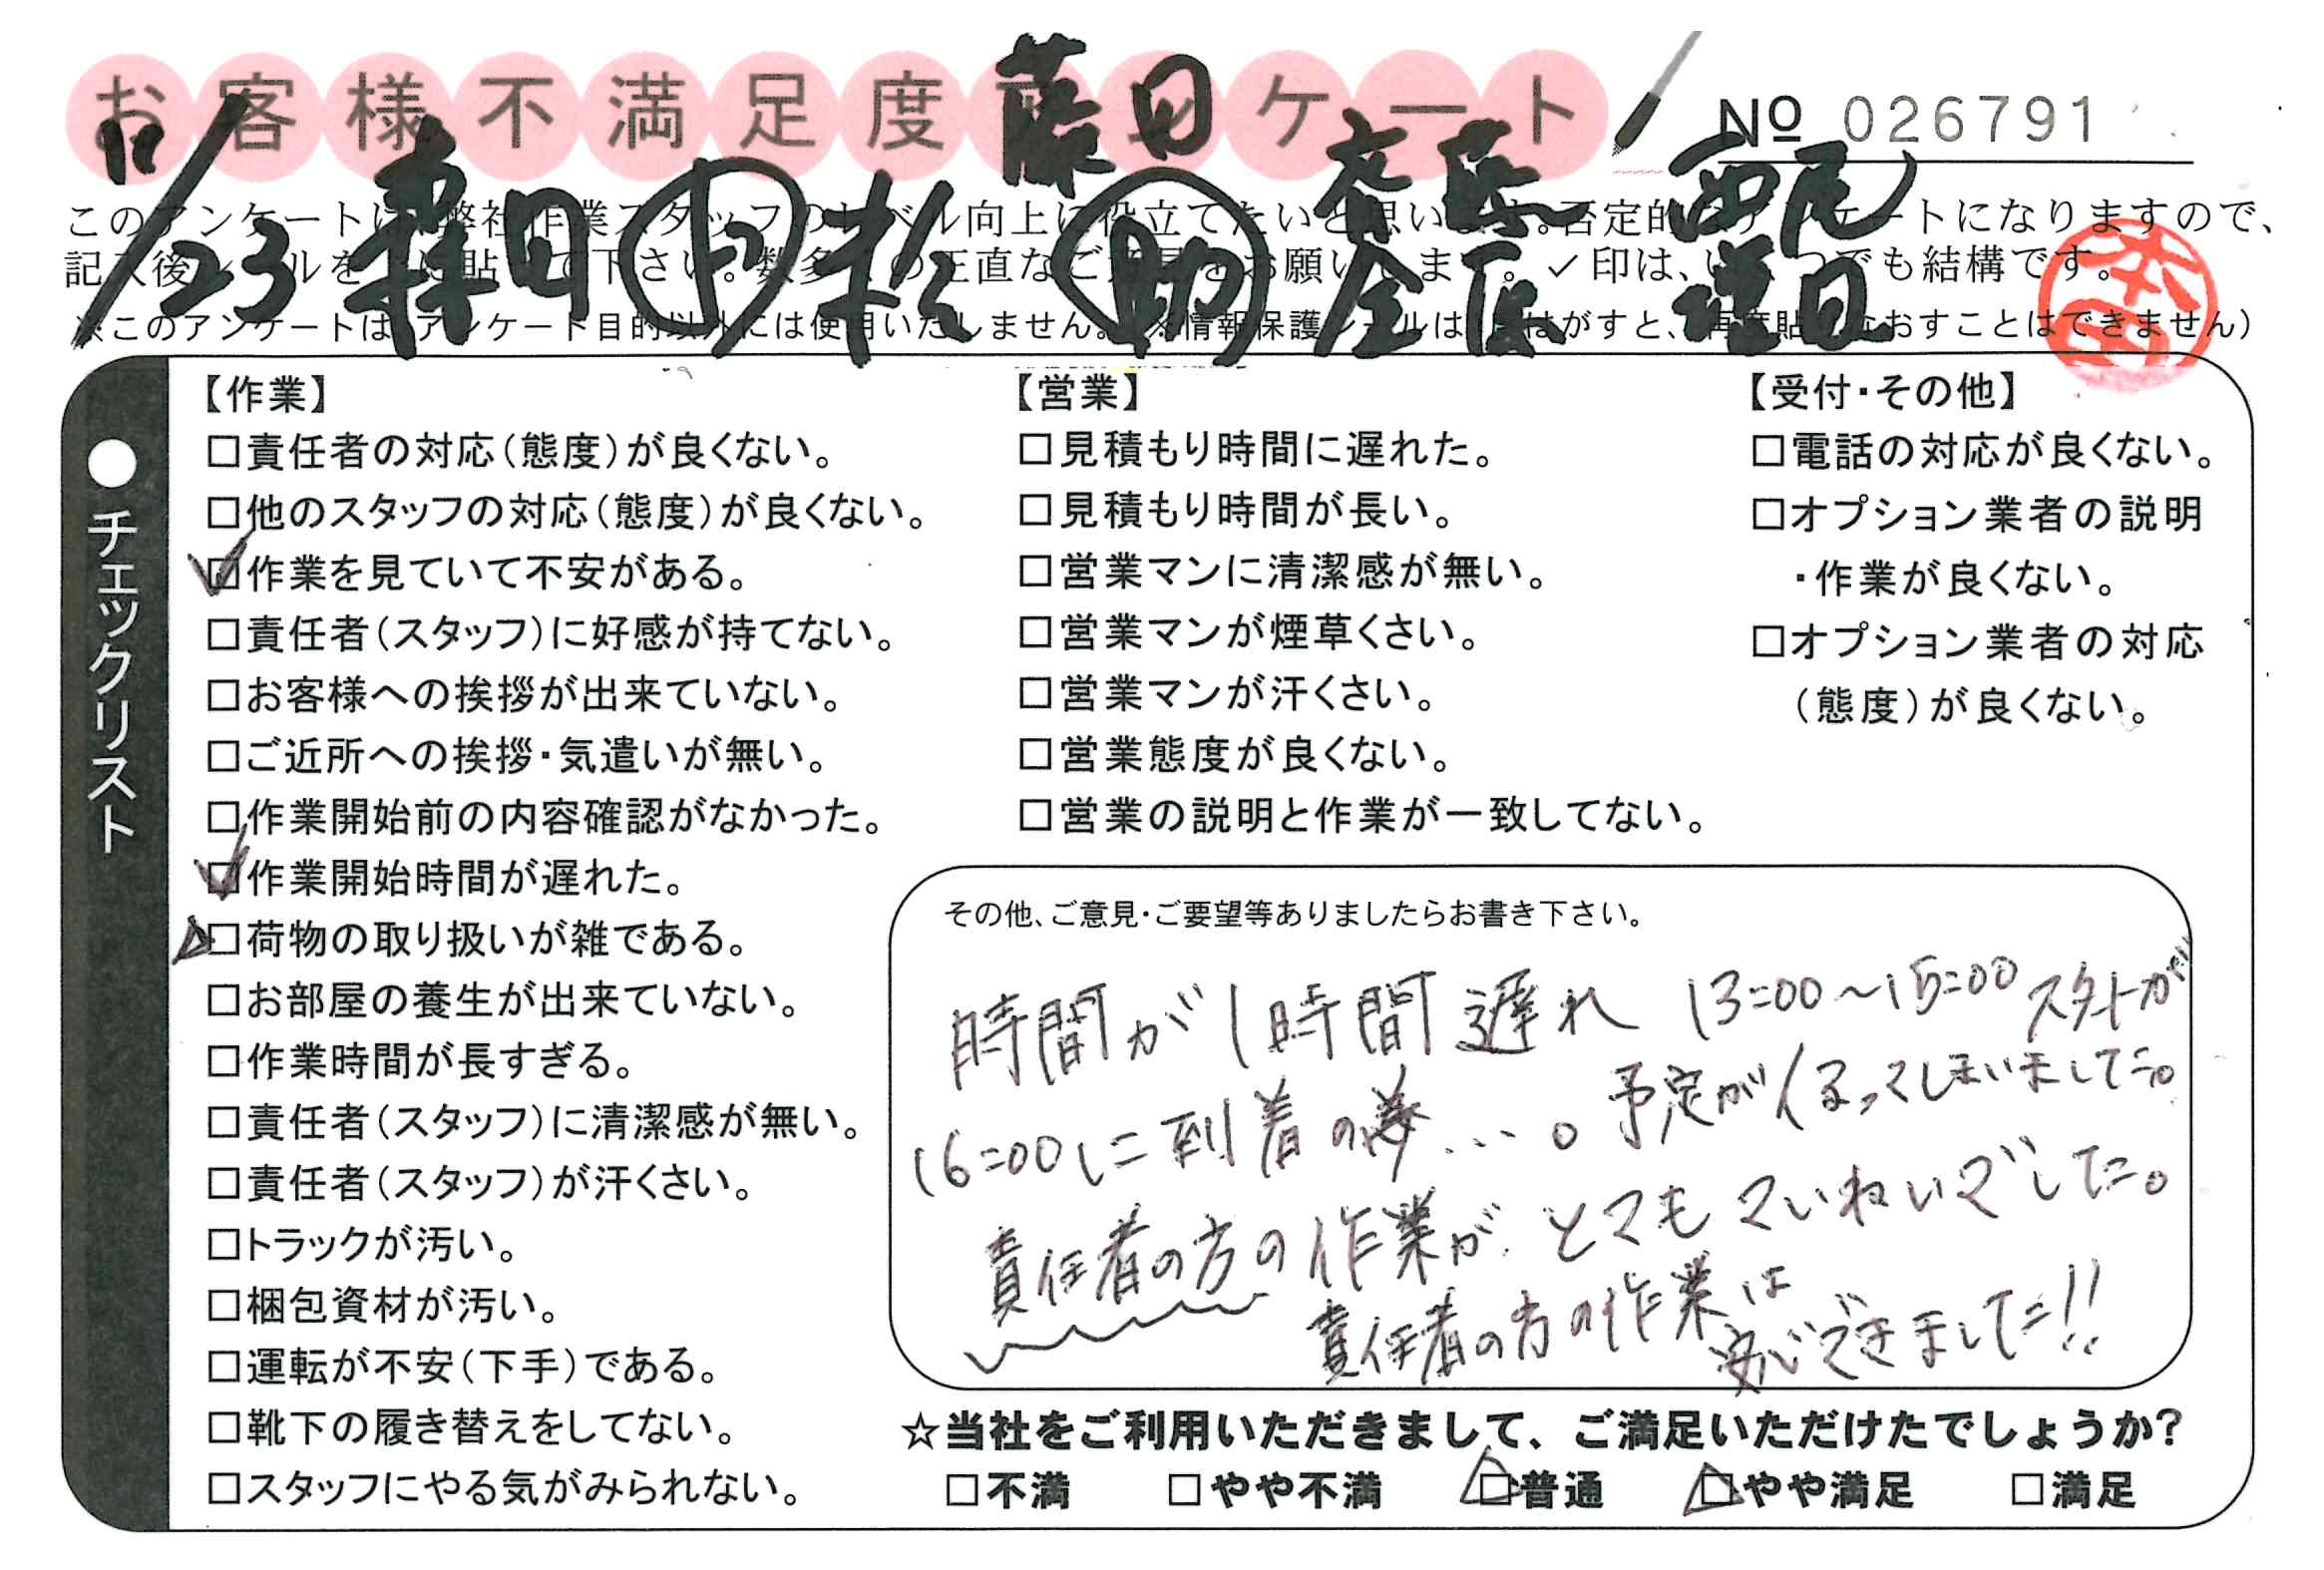 お客様不満足度アンケート
藤田
Nº 026791
斉藤
西尾
/23
助
このアンケートは、弊社作業スタッフのレベル向上に役立てたいと思います。否定的なアンケートになりますので、
記入後シールを上に貼って下さい。数多くの正直なご意見をお願いします。✓印は、いくつでも結構です。
※このアンケートは、アンケート目的以外には使用いたしません。(※情報保護シールは1度はがすと、再度貼りなおすことはできません)
●チェックリスト
【作業】
□責任者の対応(態度)が良くない。
□他のスタッフの対応(態度)が良くない。
☑作業を見ていて不安がある。
□責任者(スタッフ)に好感が持てない。
□お客様への挨拶が出来ていない。
□ご近所への挨拶・気遣いが無い。
□作業開始前の内容確認がなかった。
☑作業開始時間が遅れた。
△□荷物の取り扱いが雑である。
□お部屋の養生が出来ていない。
□作業時間が長すぎる。
□責任者(スタッフ)に清潔感が無い。
□責任者(スタッフ)が汗くさい。
□トラックが汚い。
□梱包資材が汚い。
□運転が不安(下手)である。
□靴下の履き替えをしてない。
□スタッフにやる気がみられない。
【営業】
□見積もり時間に遅れた。
□見積もり時間が長い。
□営業マンに清潔感が無い。
□営業マンが煙草くさい。
□営業マンが汗くさい。
□営業態度が良くない。
□営業の説明と作業が一致してない。
【受付・その他】
□電話の対応が良くない。
□オプション業者の説明
・作業が良くない。
□オプション業者の対応
(態度)が良くない。
その他、ご意見・ご要望等ありましたらお書き下さい。
時間が1時間遅れ 13:00〜15:00スタートが
16:00に到着の…。予定がくるってしまいました。
責任者の方の作業が、とてもていねいでした。
責任者の方の作業は
安心できました!!
☆当社をご利用いただきまして、ご満足いただけたでしょうか?
□不満 □やや不満 △□普通 △□やや満足 □満足